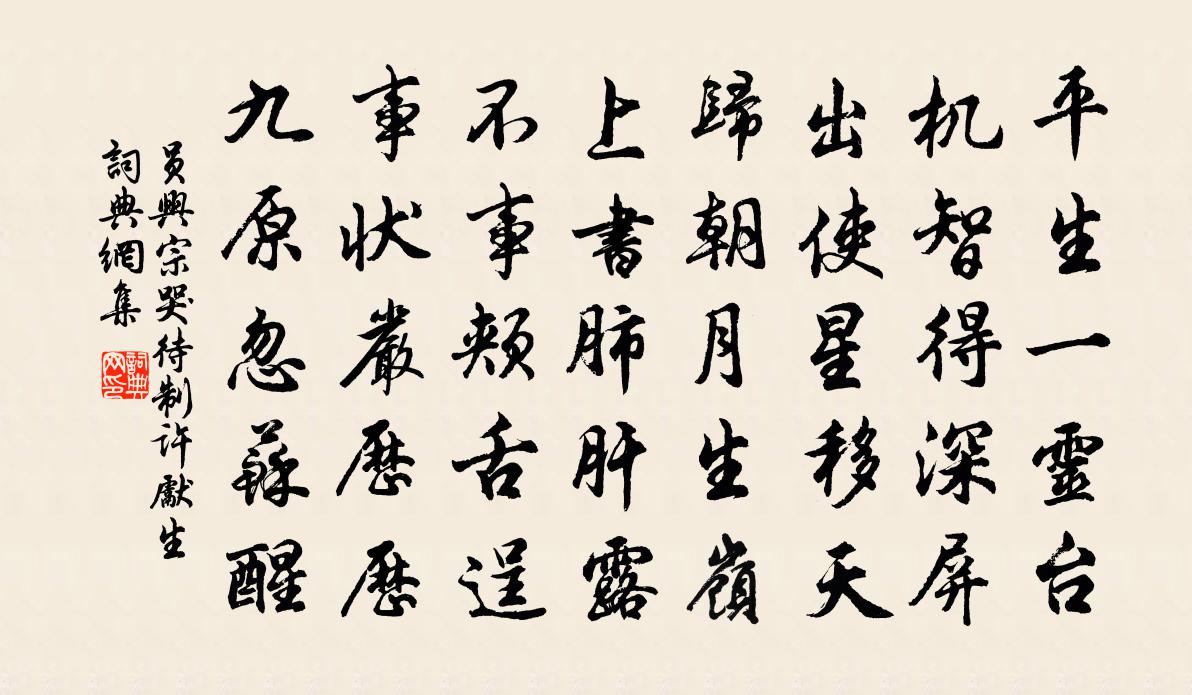 平生一靈台
机智得深屏
出使星移天
歸朝月生嶺
上書肺肝露
不事頰舌逞
事狀嚴歷歷
九原忽蘇醒
員興宗哭待制許獻生
詞典網集
詞典网印